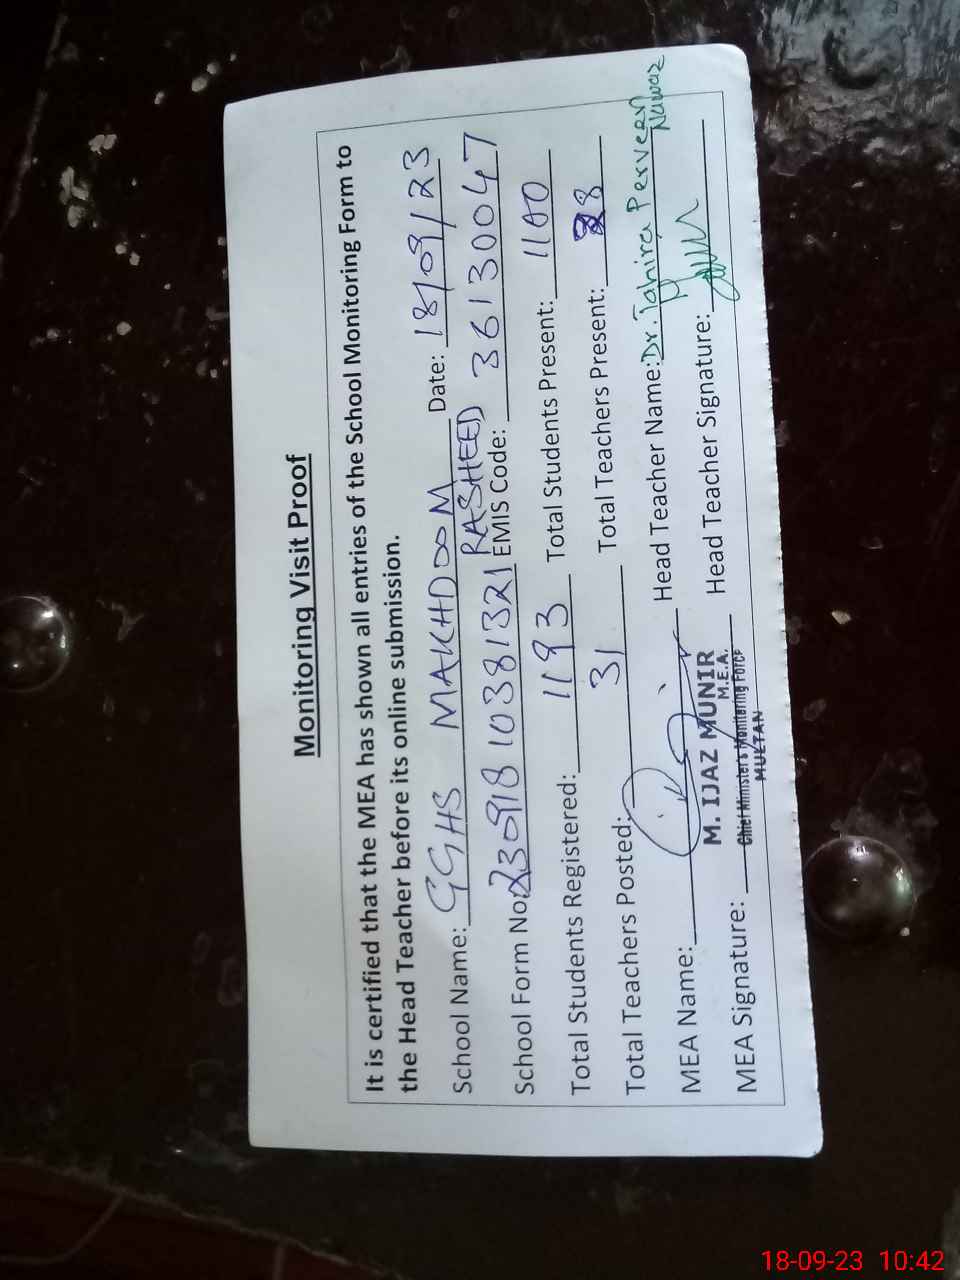 Monitoring Visit Proof
It is certified that the MEA has shown all entries of the School Monitoring Form to
the Head Teacher before its online submission.
School Name: GGHS MAKHDOOM RASHEED Date: 18/09/23
School Form No: 230918103811321 EMIS Code: 36130047
Total Students Registered: 1193 Total Students Present: 1100
Total Teachers Posted: 31 Total Teachers Present: 28
MEA Name: Head Teacher Name: Dr. Tahira Perveen Nawaz
M. IJAZ MUNIR
M.E.A.
MEA Signature: Head Teacher Signature:
Chief Minister's Monitoring Force
MULTAN
18-09-23 10:42